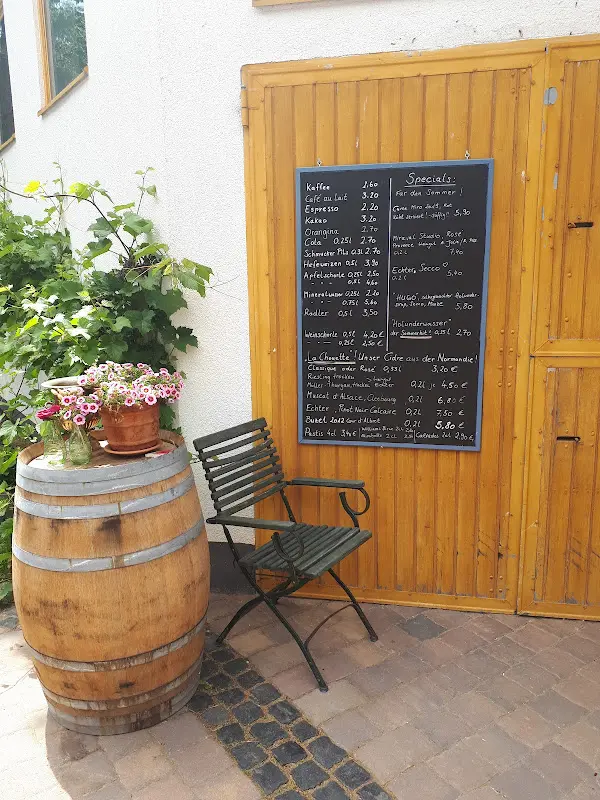 Kaffee 2,60
Café au Lait 3,20
Espresso 2,20
Kakao 3,20
Orangina 2,70
Cola 0,25l 2,70
Pils 0,3l 2,70
Hefeweizen 0,5l 3,90
Apfelschorle 0,25l 2,50
" " 0,5l 4,60
Mineralwasser 0,25l 2,20
0,75l 5,60
Radler 0,5l 3,50
Weinschorle 0,5l 4,20 €
" 0,25l 2,50 €
Specials:
Für den Sommer!
5,90
Miraval Studio, Rosé
Provence
0,2l 7,40
Echter Secco
0,2l 5,40
"HUGO",
5,80
Holunderwasser
der Sommerhit 0,2l 2,70
"La Chouette" Unser Cidre aus der Normandie!
Classique oder Rosé 0,33l 3,20 €
Riesling trocken
Müller-Thurgau, 0,2l je 4,50 €
Muscat d'Alsace, 0,2l 6,80 €
Echter, Pinot Noir Calcaire 0,2l 7,50 €
0,2l 5,80 €
Pastis 4cl 2cl 2cl Calvados 2cl 2,90 €